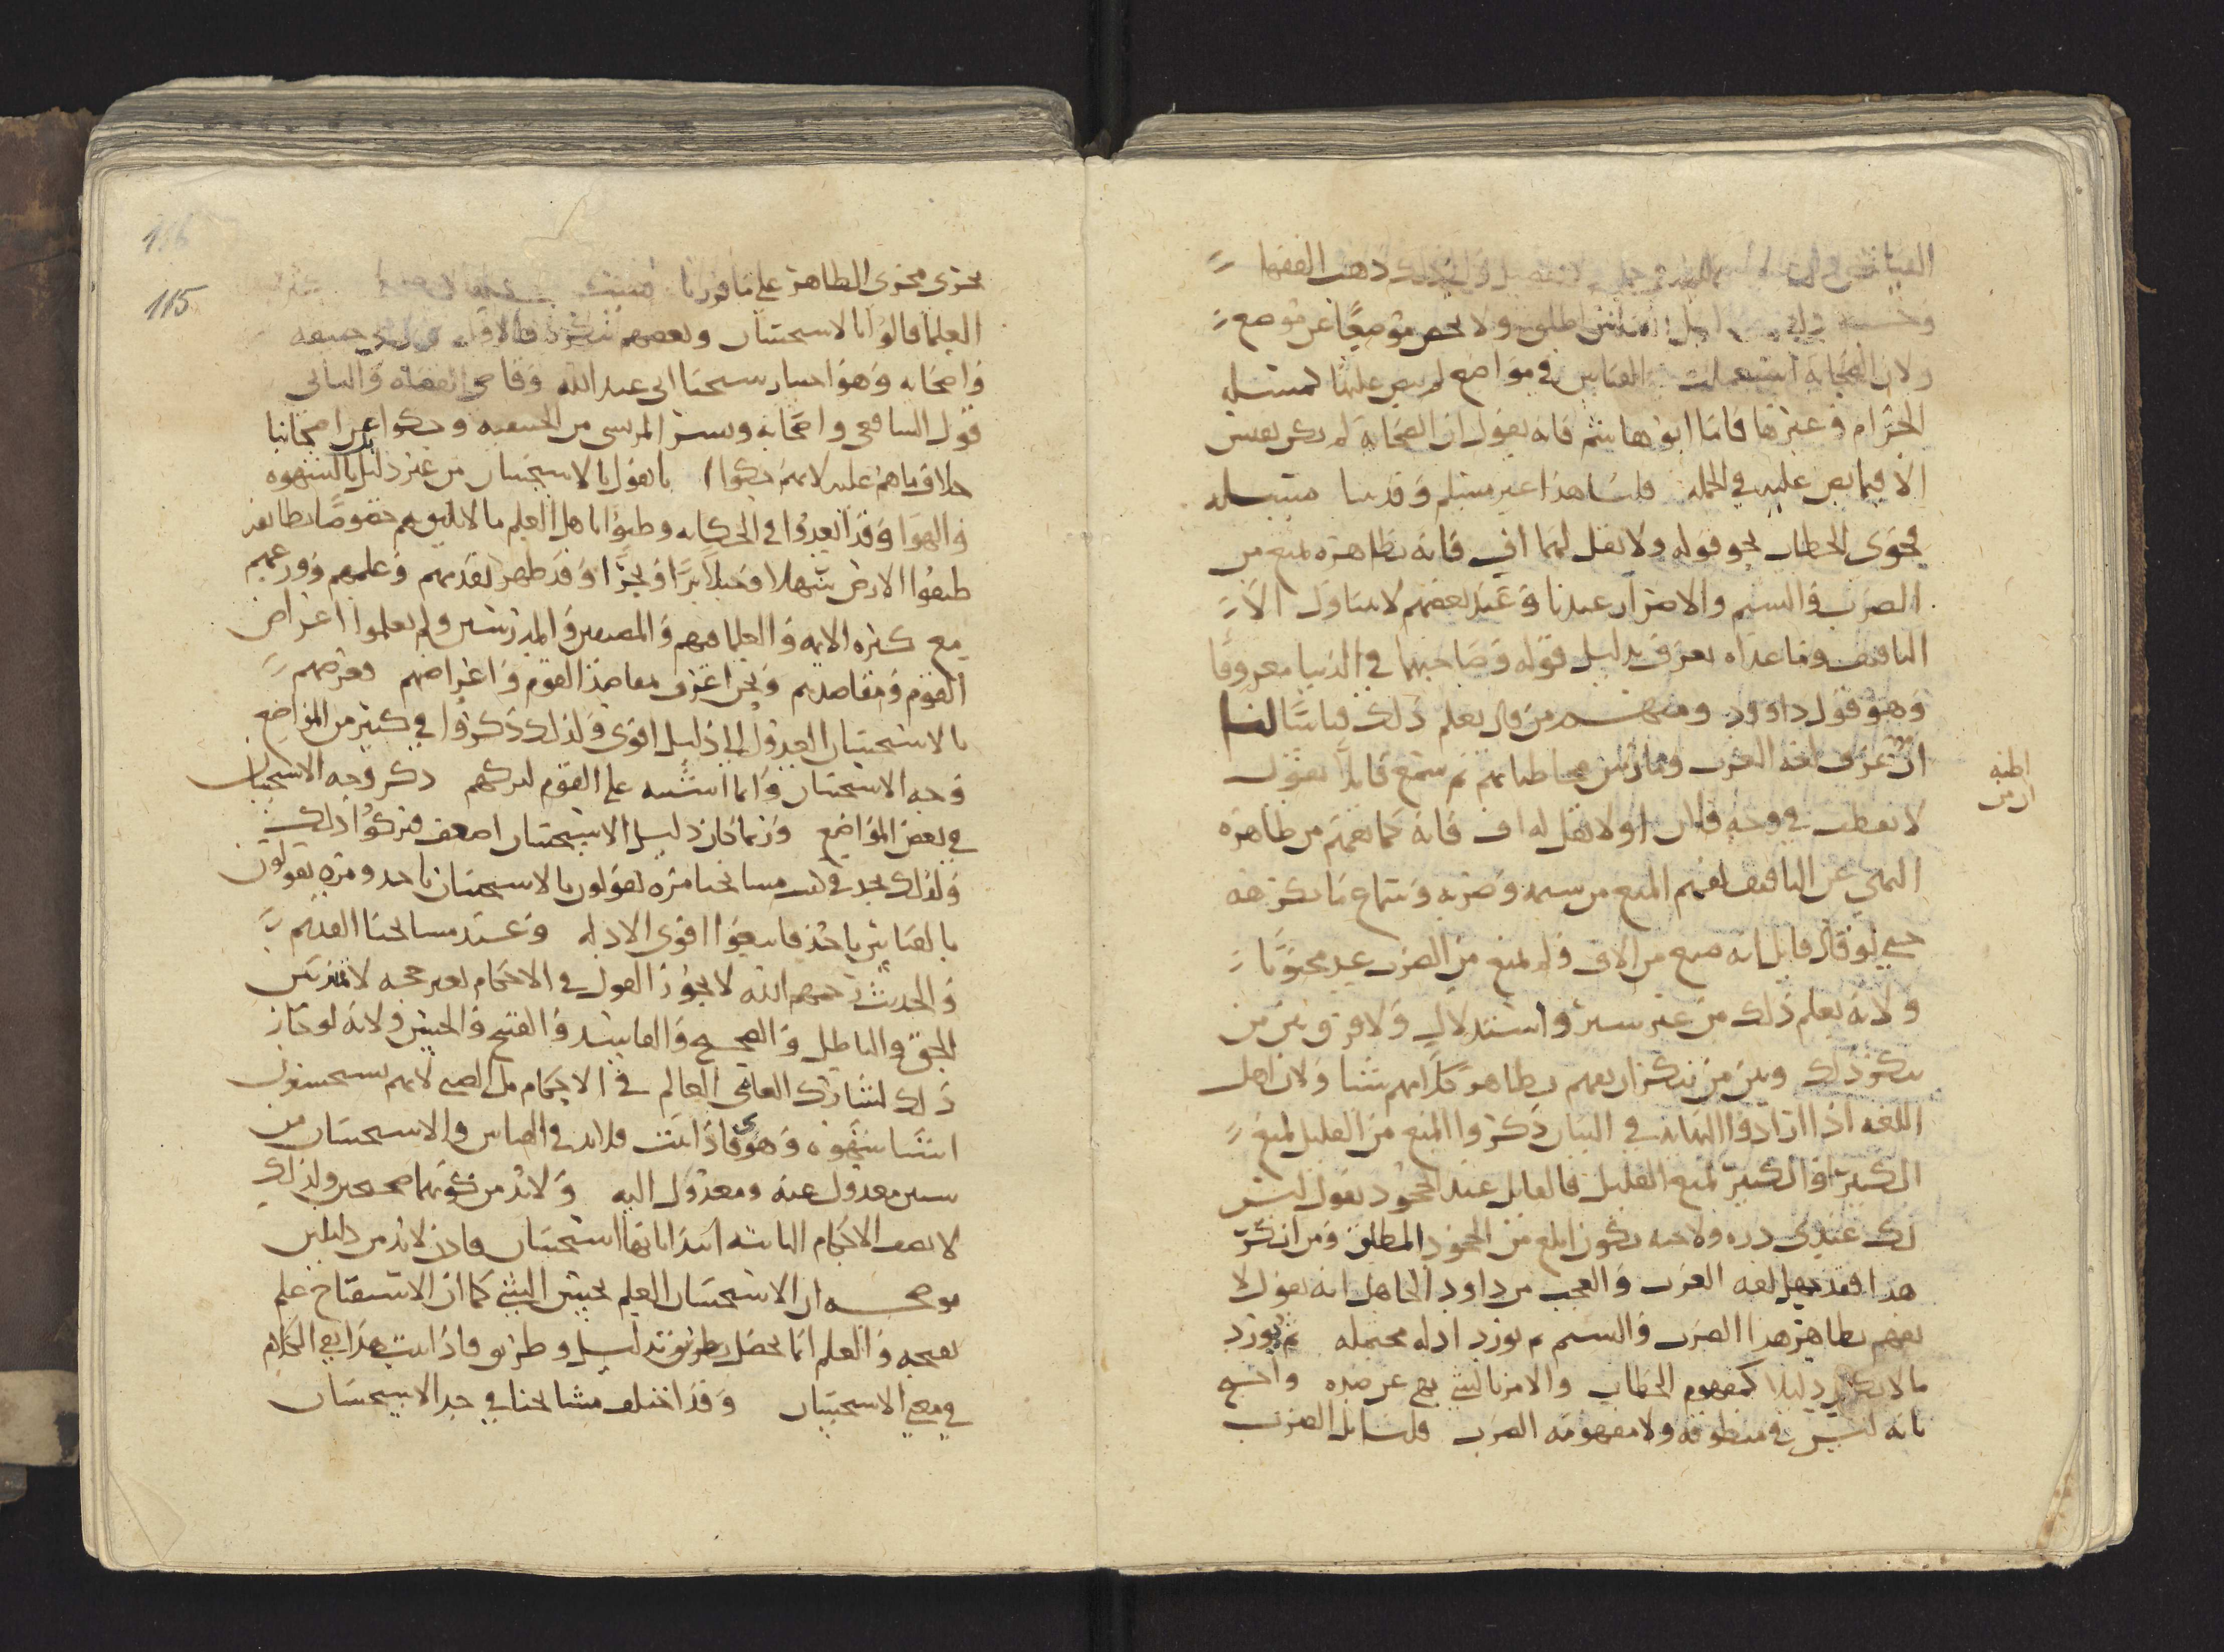 ذهب الفقها
ولا يخص موضعًا عن موضع
ولان الصحابة استعملت القياس في مواضع لم ينص عليها كمسئله
الحرام وغيرها فاما ابوهاشم فانه يقول ان الصحابة لم يكن يقيس
الا فيما نص عليه في الجمله قلنا هذا غير مسلم وقد بينا مسئله
فحوى الخطاب نحو قوله ولا تقل لهما اف فانه بظاهره يمنع من
الضرب والشتم والاضرار عندنا وعند بعضهم لا يتناول الا
التافيف وما عداه يعرف بدليل قوله وصاحبهما في الدنيا معروفا
وهو قول داوود ومنهم من قال يعلم ذلك قياسًا لنا
ان من عرف لغه العرب ومارس مخاطباتهم ثم سمع قايلاً يقول
لا تقطب في وجه فلان او لا تقل له اف فانه كما يفهم من ظاهره
النهي عن التافيف يفهم المنع من شتمه وضربه وسماع ما يكرهه
حتى لو قال قايل انه منع من الاف ولم يمنع من الضرب عد مجنونا
ولانه يعلم ذلك من غير سبر واستدلال ولا فرق بين من
ينكر ذلك وبين من ينكر ان يفهم بظاهر كلامهم شيا ولان اهل
اللغه اذا ارادوا المبالغه في البيان ذكروا المنع من القليل لمنع
الكثير او الكثير لمنع القليل فالقايل عند الجحود يقول ليس
لك عندي دره ولا حبه يكون ابلغ من الجحود المطلق ومن انكر
هذا فقد جهل لغه العرب والعجب من داود الجاهل انه يقول لا
يفهم بظاهر هذا الضرب والشتم ثم يورد ادله محتمله ثم يورد
ما لا يكون دليلا كمفهوم الخطاب والامر بالشي نهي عن ضده واحتج
بانه ليس في منطوقه ولا مفهومه الضرب قلنا بل الضرب
اظنه
ان من
115
يجري مجرى الظاهر على ما قررنا
العلما قالوا بالاستحسان وبعضهم ينكره فالاول قول ابي حنيفه
واصحابه وهو اختيار شيخنا ابي عبد الله وقاضي القضاة والثاني
قول الشافعي واصحابه وبشر المريسي من الحنفيه وحكوا عن اصحابنا
خلاف ما هم عليه لانهم حكوا انا نقول بالاستحسان من غير دليل بالشهوه
والهوا وقد ابعدوا في الحكايه وظنوا باهل العلم ما لا يليق بهم خصوصًا بطايفه
طبقوا الارض سهلا وجبلا برًا وبحرًا وقد ظهر تقدمهم وعلمهم وورعهم
مع كثره الايمه والعلما فيهم والمصنفين والمدرسين ولم يعلموا اغراض
القوم ومقاصدهم ونحن اعرف بمقاصد القوم واغراضهم وغرضهم
بالاستحسان العدول الى دليل اقوى ولذلك ذكروا في كثير من المواضع
وجه الاستحسان وانما اشتبه على القوم لتركهم ذكر وجه الاستحسان
في بعض المواضع وربما كان دليل الاستحسان اضعف فتركوا ذلك
ولذلك تجد في كتب مشايخنا مره يقولون بالاستحسان ناخذ ومره يقولون
بالقياس ناخذ فاتبعوا اقوى الادله وعند مشايخنا القديم
والحديث رحمهم الله لا يجوز القول في الاحكام بغير حجه لانه يلتبس
الحق والباطل والصحيح والفاسد والقبح والحسن ولانه لو جاز
ذلك لشارك العامي العالم في الاحكام بل الصبي لانهم يستحسنون
اشيا بشهوه وهوى فاذا ثبت فلابد في القياس والاستحسان من
شيين معدول عنه ومعدول اليه ولابد من كونهما صحيحين ولذلك
لا نصف الاحكام الثابته ابتدا بانها استحسان فاذن لابد من دليلين
يوضحه ان الاستحسان العلم بحسن الشي كما ان الاستقباح علم
بقبحه والعلم انما يحصل بطريق دليل وطريق فاذا ثبت هذا بقي الكلام
في معنى الاستحسان وقد اختلف مشايخنا في حد الاستحسان